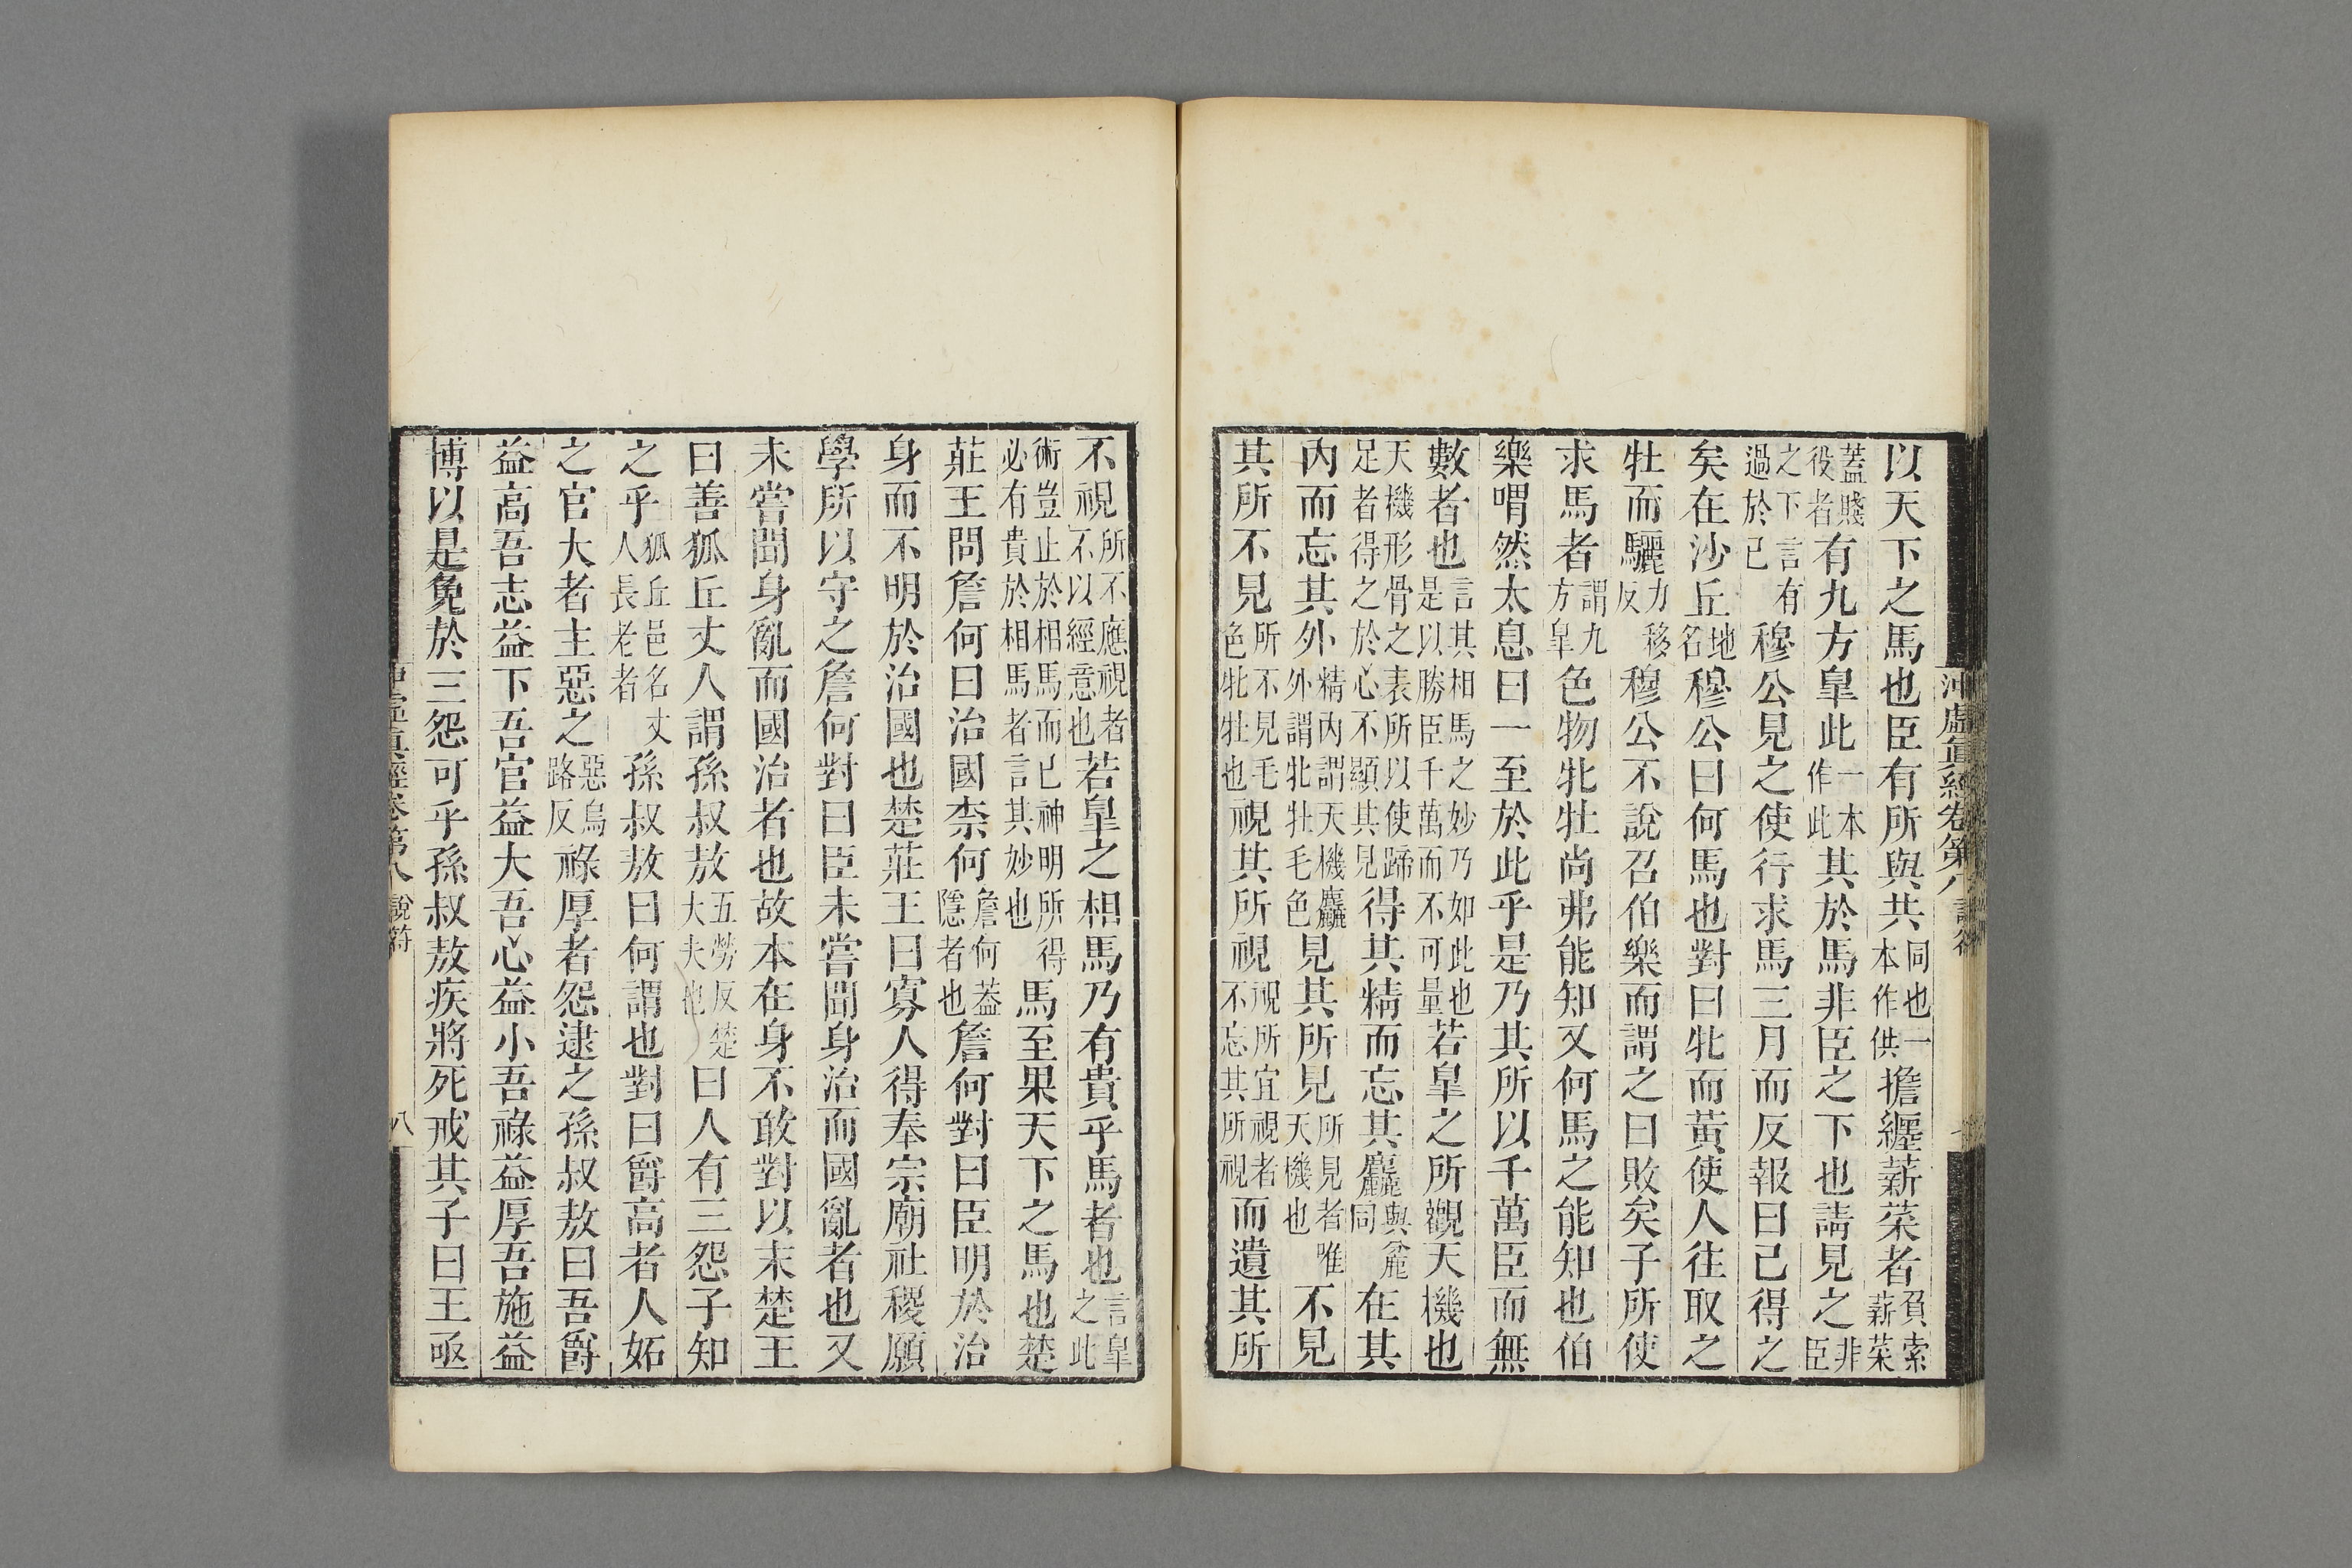 以天下之馬也臣有所與共同也一本作供擔纆薪菜者負索薪菜
蓋賤役者有九方臯此一本作此其於馬非臣之下也請見之非臣
之下言有過於己穆公見之使行求馬三月而反報曰已得之
矣在沙丘地名穆公曰何馬也對曰牝而黃使人往取之
牡而驪力移反穆公不說召伯樂而謂之曰敗矣子所使
求馬者謂九方臯色物牝牡尚弗能知又何馬之能知也伯
樂喟然太息曰一至於此乎是乃其所以千萬臣而無
數者也言其相馬之妙乃如此也是以勝臣千萬而不可量若臯之所觀天機也
天機形骨之表所以使蹄足者得之於心不顯其見得其精而忘其麤與麄同在其
內而忘其外精內謂天機麤外謂牝牡毛色見其所見所見者唯天機也不見
其所不見所不見毛色牝牡也視其所視視所宜視者不忘其所視而遺其所
沖虛眞經卷第八 說符
不視所不應視者不以經意也若臯之相馬乃有貴乎馬者也言臯之此
術豈止於相馬而已神明所得必有貴於相馬者言其妙也馬至果天下之馬也楚
莊王問詹何曰治國柰何詹何葢隱者也詹何對曰臣明於治
身而不明於治國也楚莊王曰寡人得奉宗廟社稷願
學所以守之詹何對曰臣未嘗聞身治而國亂者也又
未嘗聞身亂而國治者也故本在身不敢對以末楚王
曰善狐丘丈人謂孫叔敖五勞反楚大夫也曰人有三怨子知
之乎狐丘邑名丈人長老者孫叔敖曰何謂也對曰爵高者人妬
之官大者主惡之惡烏路反祿厚者怨逮之孫叔敖曰吾爵
益高吾志益下吾官益大吾心益小吾祿益厚吾施益
博以是免於三怨可乎孫叔敖疾將死戒其子曰王亟
沖虛眞經卷第八 說符 八